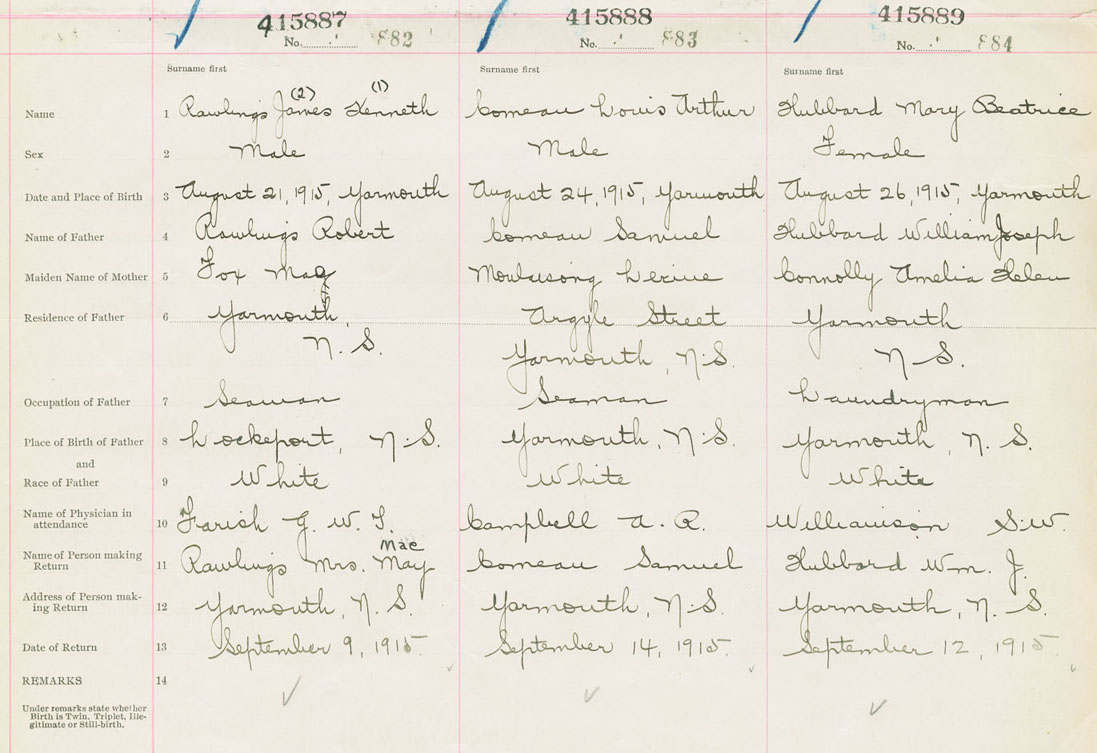 415887 415888 415889
No. 882 No. 883 No. 884
Surname first Surname first Surname first
(2) (1)
Name 1 Rawlings James Kenneth Comeau Louis Arthur Hubbard Mary Beatrice
Sex 2 Male Male Female
Date and Place of Birth 3 August 21, 1915, Yarmouth August 24, 1915, Yarmouth August 26, 1915, Yarmouth
Name of Father 4 Rawlings Robert Comeau Samuel Hubbard William Joseph
Maiden Name of Mother 5 Fox Connolly Amelia Helen
Residence of Father 6 Yarmouth Argyle Street Yarmouth
N. S. Yarmouth, N.S. N S.
Occupation of Father 7 Seaman Seaman Laundryman
Place of Birth of Father 8 Lockeport, N.S. Yarmouth, N.S. Yarmouth, N. S.
and
Race of Father 9 White White White
Name of Physician in
attendance 10 Farish G. W. T. Campbell A. R. Williamson S.W.
Mae
Name of Person making
Return 11 Rawlings Mrs. May Comeau Samuel Hubbard Wm. J.
Address of Person mak-
ing Return 12 Yarmouth, N. S. Yarmouth, N.S. Yarmouth, N. S.
Date of Return 13 September 9, 1915. September 14, 1915. September 12, 1915.
REMARKS 14
Under remarks state whether
Birth is Twin, Triplet, Ille-
gitimate or Still-birth.